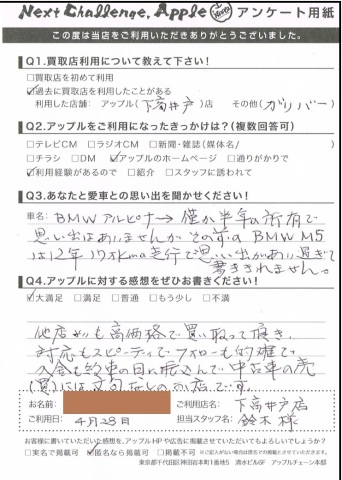 Next Challenge, Apple アンケート用紙
この度は当店をご利用いただきありがとうございました。
Q1.買取店利用について教えて下さい!
□買取店を初めて利用
☑過去に買取店を利用したことがある
利用した店舗: アップル(下高井戸)店 その他(ガリバー)
Q2.アップルをご利用になったきっかけは?(複数回答可)
□テレビCM □ラジオCM □新聞・雑誌(媒体名/ )
□チラシ □DM ☑アップルのホームページ □通りがかりで
☑利用経験があるので □紹介 □スタッフに誘われて
Q3.あなたと愛車との思い出を聞かせください!
車名: BMWアルピナ→僅か半年の所有で
思い出はありませんが その前の BMW M5
は12年 17万km走行で思い出があり過ぎて
書ききれません。
Q4.アップルに対する感想をぜひお書きください!
☑大満足 □満足 □普通 □もう少し □不満
他店よりも高価格で買い取って頂き、
対応もスピーディでフォローも的確で
入金も約束の日に振込んで中古車の売
(買)には文句なしのお店です。
お名前: ご利用店名: 下高井戸店
ご利用日: 4月28日 担当スタッフ名: 鈴木様
お客様に書いていただいた感想を、アップルHPや広告に掲載させていただいてもよろしいでしょうか?
□実名で掲載可 ☑匿名なら掲載可 □掲載不可 ※ご記入がない場合は匿名での掲載とさせていただきます。
東京都千代田区神田岩本町1番地5 清水ビル6F アップルチェーン本部